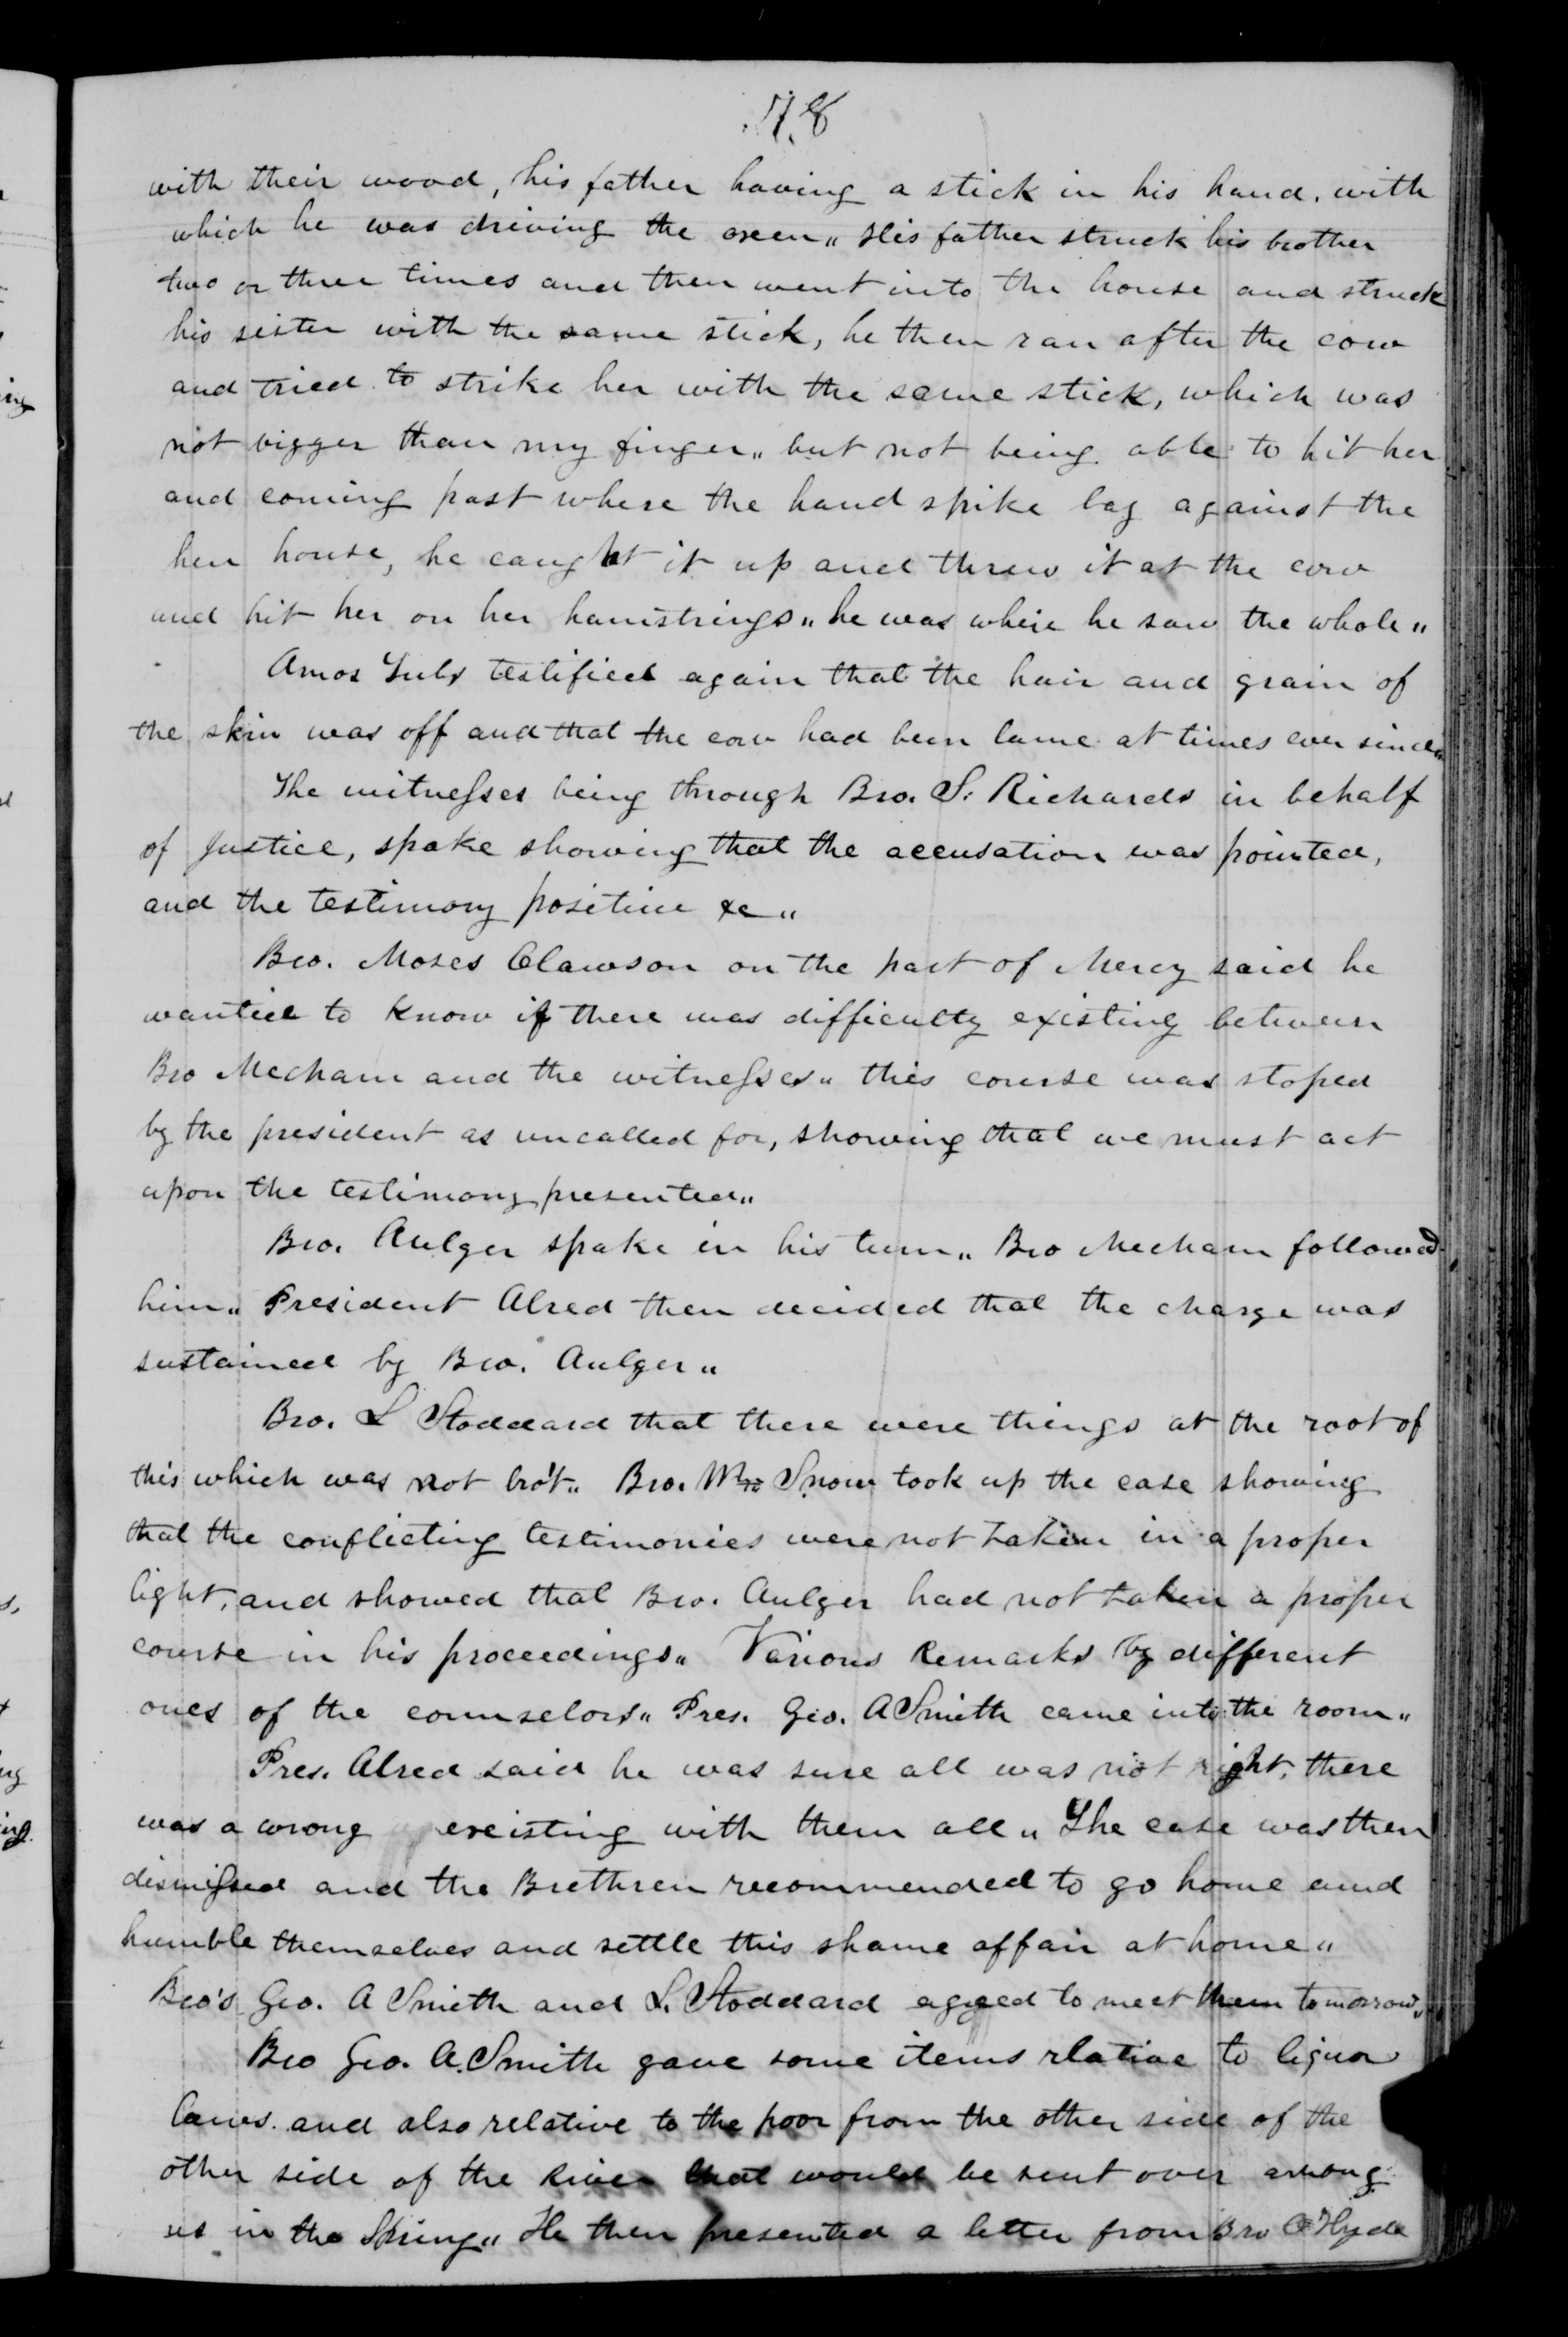 78
with their wood, his father having a stick in his hand, with
which he was driving the oxen„ His father struck his brother
two or three times and then went into the house and struck
his sister with the same stick, he then ran after the cow
and tried to strike her with the same stick, which was
not bigger than my finger„ but not being able to hit her
and coming past where the hand spike lay against the
hen house, he caught it up and threw it at the cow
and hit her on her hamstrings„ he was where he saw the whole„
Amos testified again that the hair and grain of
the skin was off and that the cow had been lame at times ever since„
The witnesses being through Bro. S. Richards in behalf
of Justice, spake showing that the accusation was pointed,
and the testimony positive &c„
Bro. Moses Clawson on the part of Mercy said he
wanted to know if there was difficulty existing between
Bro Mecham and the witnesses„ this course was stoped
by the president as uncalled for, showing that we must act
upon the testimony presented„
Bro. Aulger spake in his turn„ Bro Mecham followed
him„ President Alred then decided that the charge was
sustained by Bro. Aulger„
Bro. L Stoddard that there were things at the root of
this which was not bro't„ Bro. Wm Snow took up the case showing
that the conflicting testimonies were not taken in a proper
light, and showed that Bro. Aulger had not taken a proper
course in his proceedings„ Various Remarks by different
ones of the counselors„ Pres. Geo. A Smith came into the room„
Pres. Alred said he was sure all was not right, there
was a wrong exeisting with them all„ The case was then
dismissed and the Brethren recommended to go home and
humble themselves and settle this shame affair at home„
Bro's Geo. A Smith and L. Stoddard agreed to meet them tomorrow„
Bro Geo. A. Smith gave some items rlative to liquor
laws. and also relative to the poor from the other side of the
other side of the River that would be sent over among
us in the Spring„ He then presented a letter from Bro O Hyde